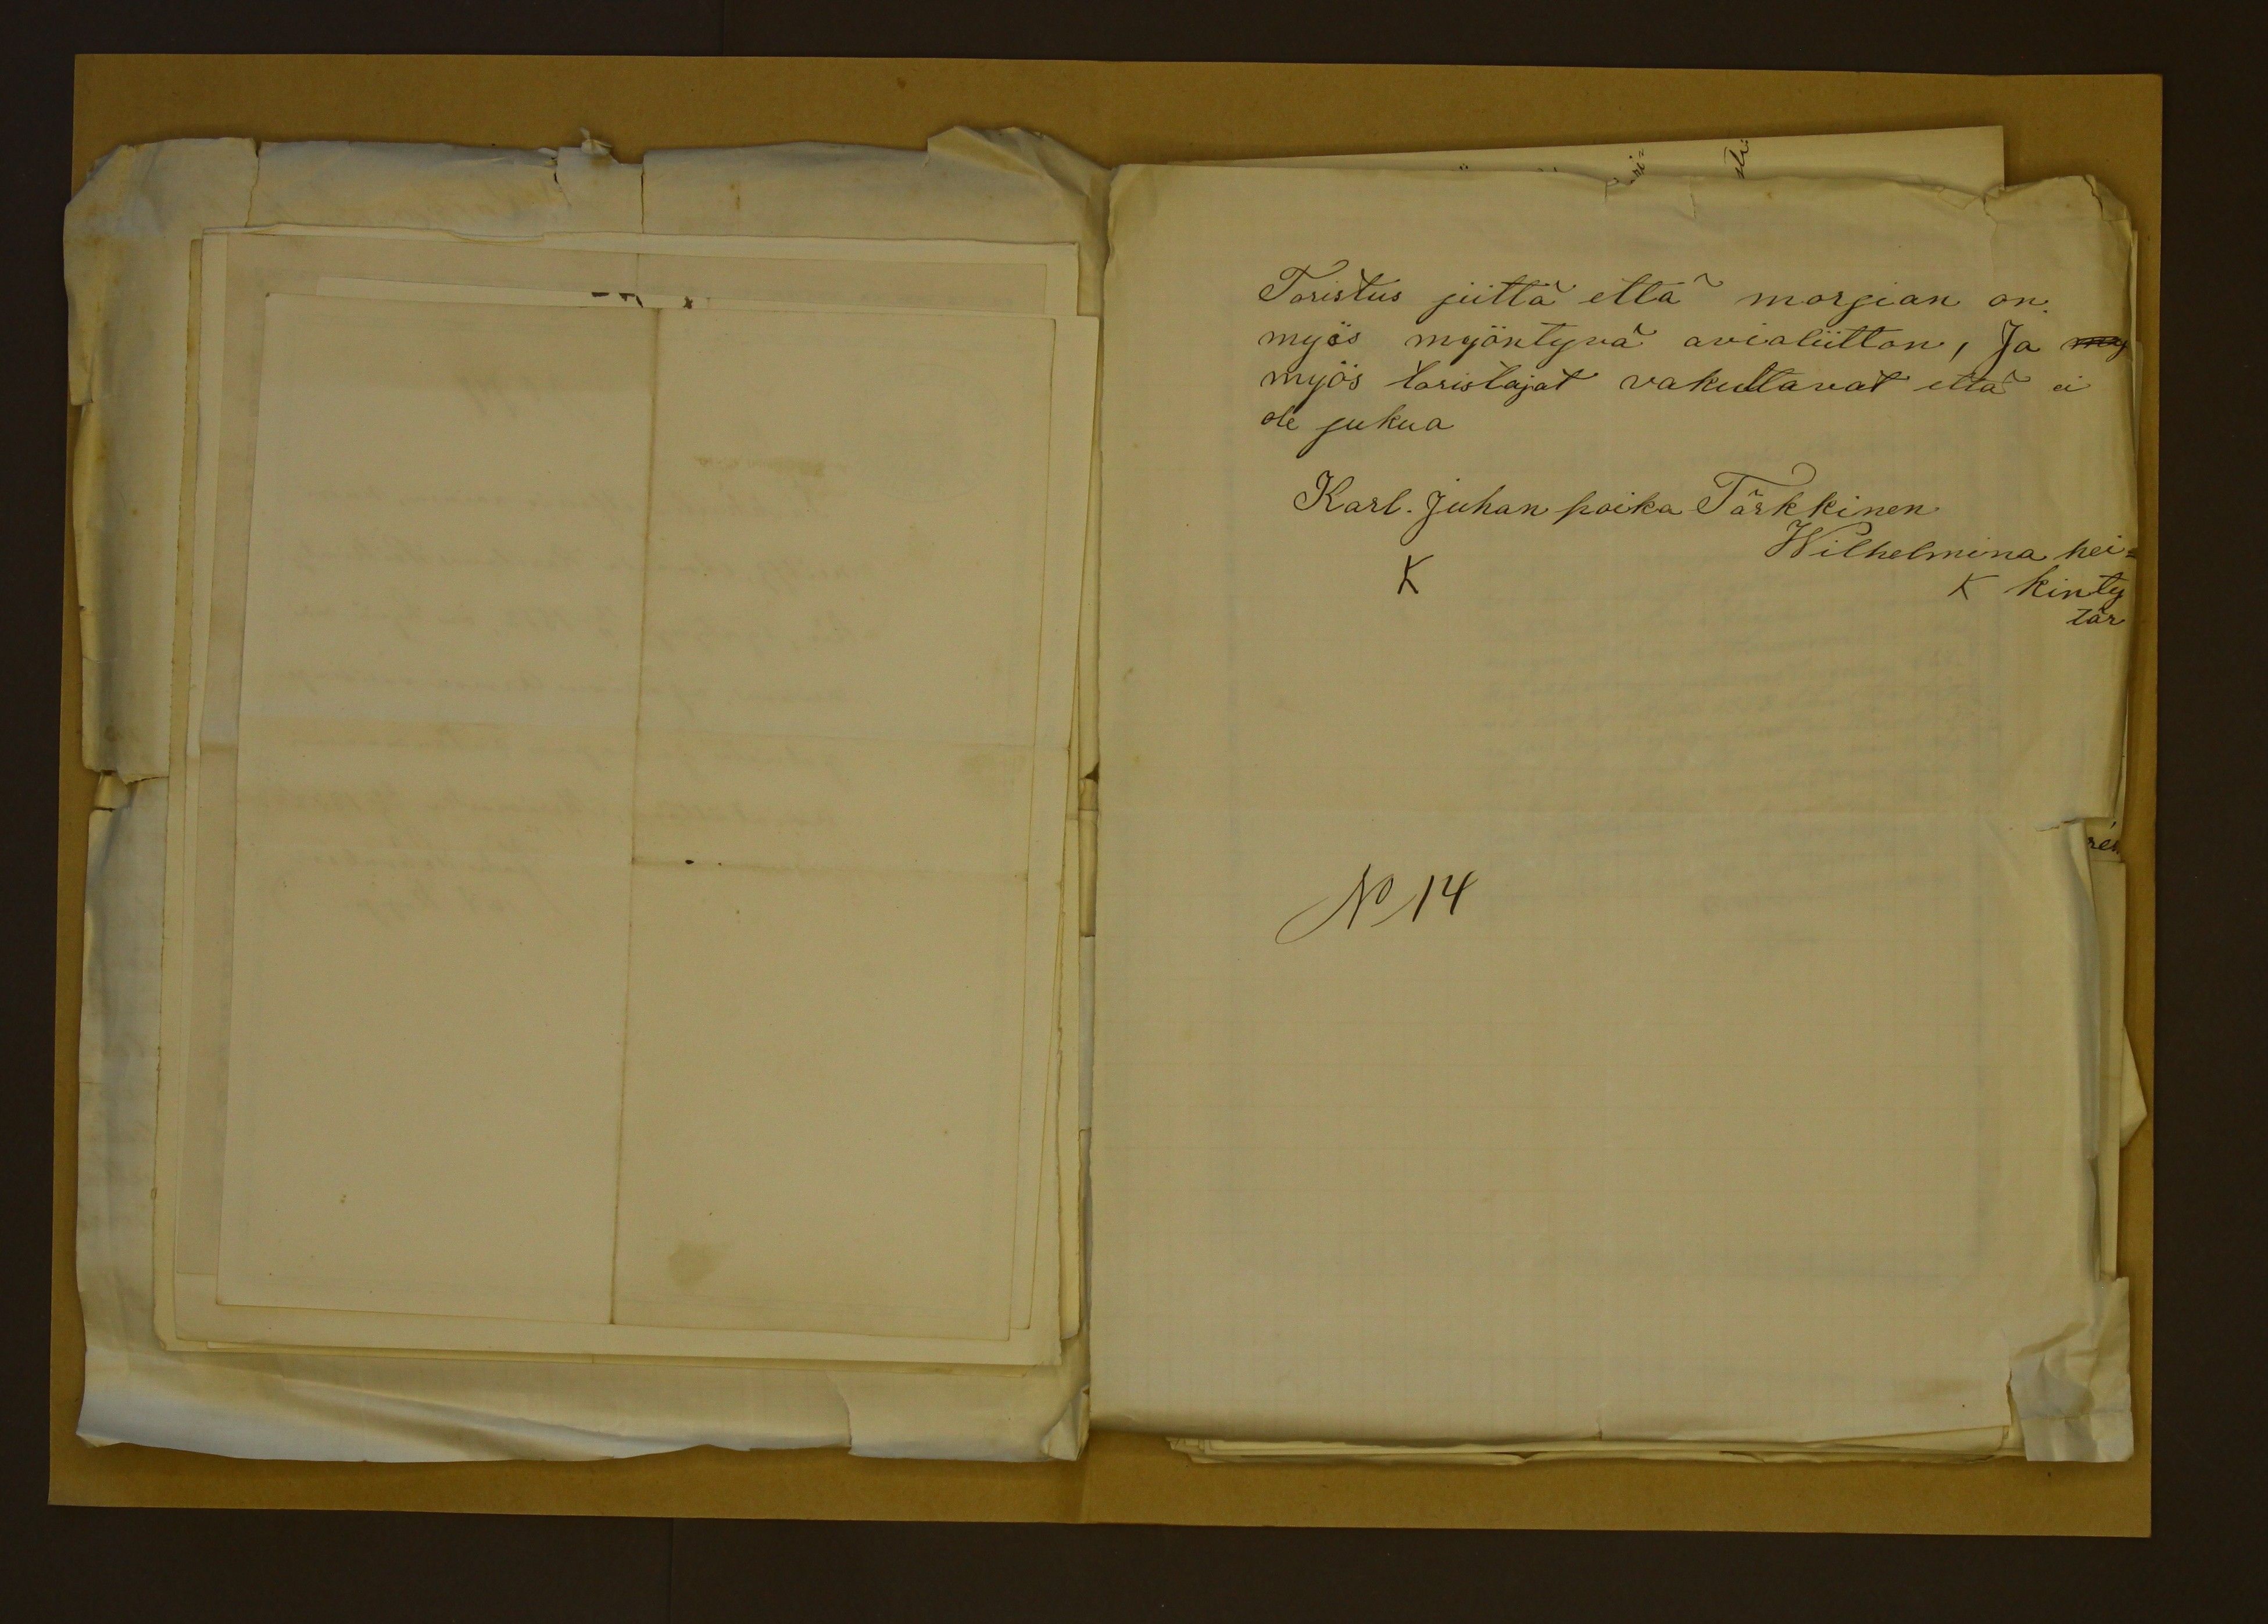 Toristus siittä että morsian on
myös myöntyvä avioliitton, Ja my
myös toristajat vakuttavat että ei
ole sukua
Karl. Juhan poika Tärkkinen
Wilhelmina hei=
K K kinty
tär
No 14